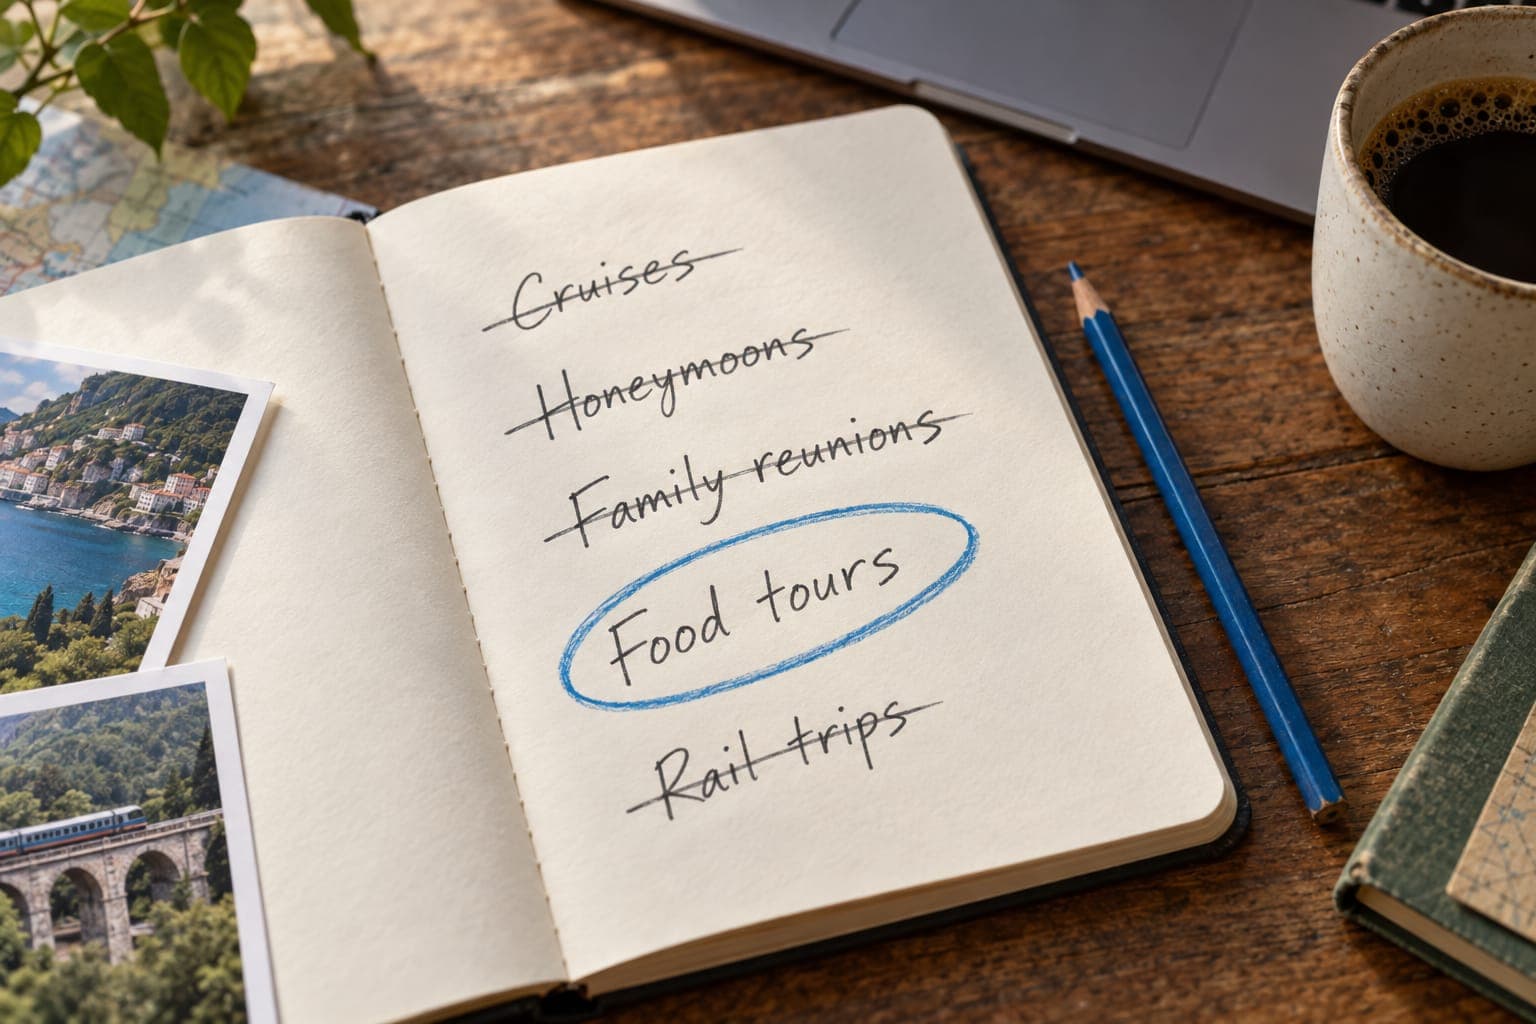 Cruises
Honeymoons
Family reunions
Food tours
Rail trips